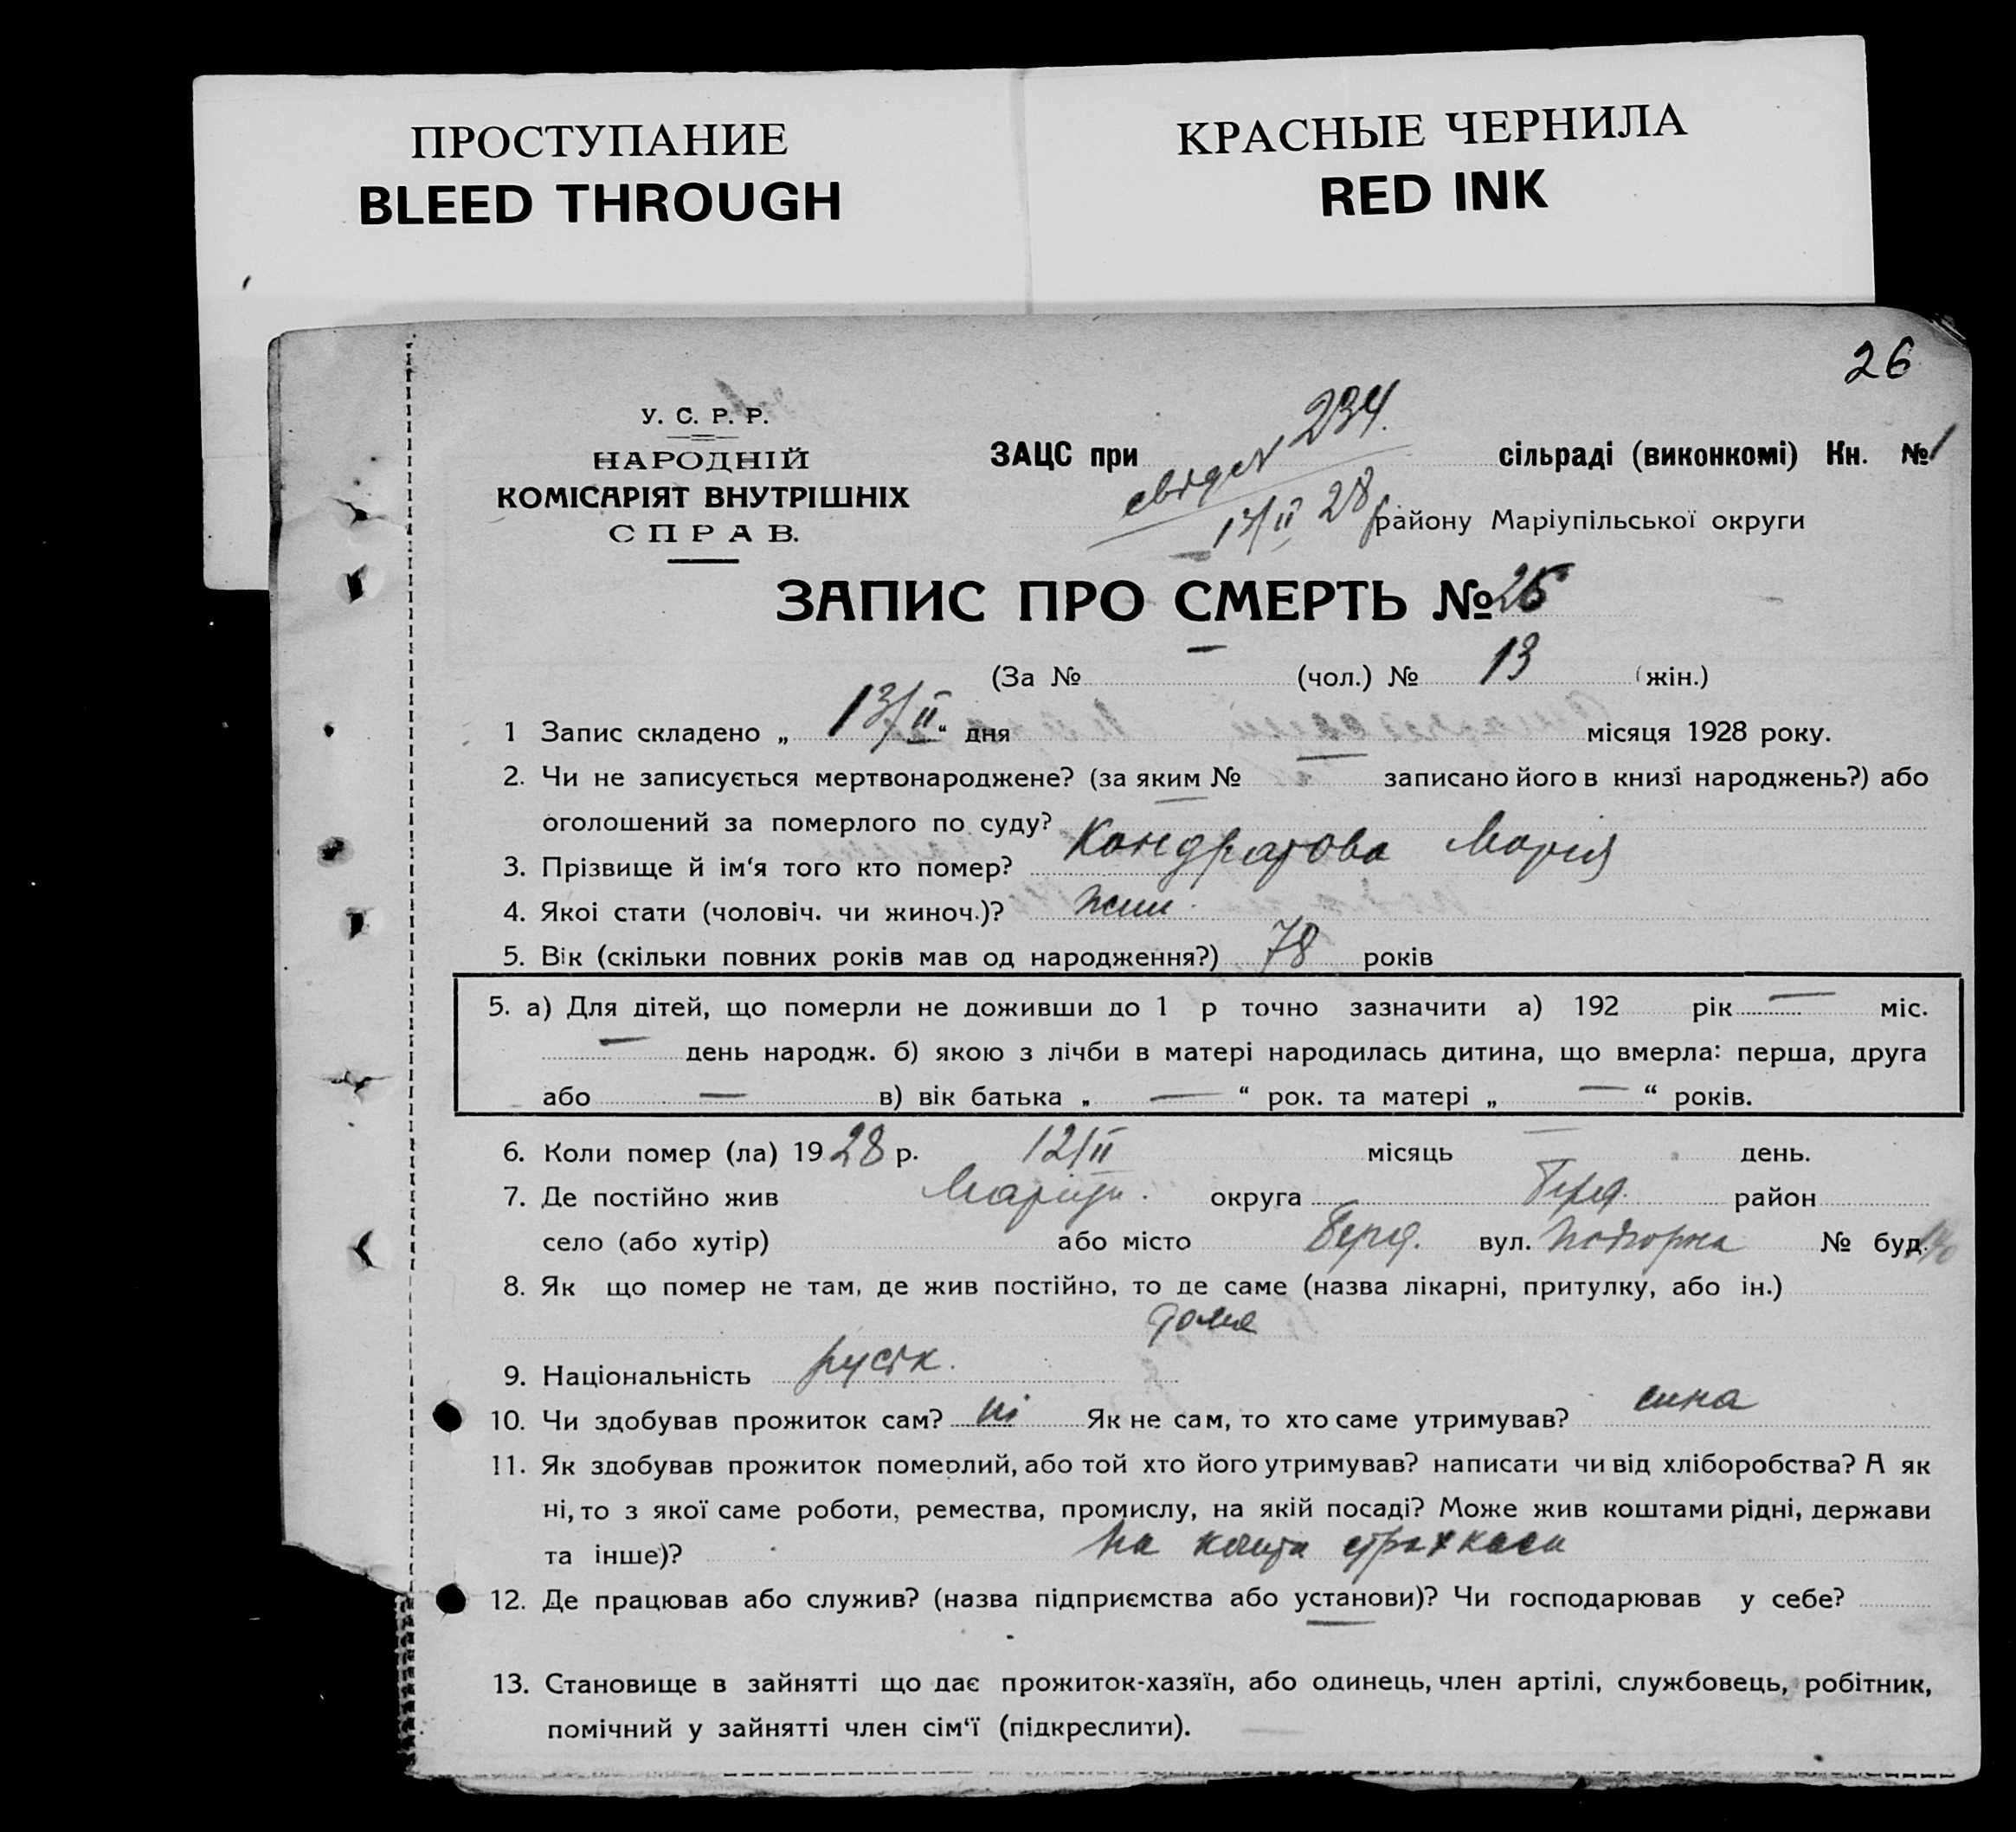 ПРОСТУПАНИЕ
BLEED THROUGH
КРАСНЫЕ ЧЕРНИЛА
RED INK
26
У. С. Р. Р.
НАРОДНІЙ
КОМІСАРІЯТ ВНУТРІШНІХ
СПРАВ.
ЗАЦС при сільраді (виконкомі) Кн. № 1
234.
28р
району Маріупільської округи
ЗАПИС ПРО СМЕРТЬ №
(За № — (чол.) № 13 (жін.)
1 Запис складено „ 13/II “ дня місяця 1928 року.
2. Чи не записується мертвонароджене? (за яким № — записано його в книзі народжень?) або
оголошений за померлого по суду? —
3. Прізвище й ім‘я того кто помер? Кондратова Марія
4. Якоі стати (чоловіч. чи жиноч.)? жин.
5. Вік (скільки повних років мав од народження?) 78 років
5. а) Для дітей, що померли не доживши до 1 р точно зазначити а) 192 рік — міс.
— день народж. б) якою з лічби в матері народилась дитина, що вмерла: перша, друга
або — в) вік батька „ — “ рок. та матері „ — “ років.
6. Коли помер (ла) 1928 р. 12/II місяць — день.
7. Де постійно жив Маріуп. округа район
село (або хутір) або місто Берд. вул. № буд.
8. Як що помер не там, де жив постійно, то де саме (назва лікарні, притулку, або ін.)
дома
9. Національність руськ.
10. Чи здобував прожиток сам? ні Як не сам, то хто саме утримував? сина
11. Як здобував прожиток померлий, або той хто його утримував? написати чи від хліборобства? А як
ні, то з якої саме роботи, ремества, промислу, на якій посаді? Може жив коштами рідні, держави
та інше)? на кошти страхкаси
12. Де працював або служив? (назва підприємства або установи)? Чи господарював у себе?
—
13. Становище в зайнятті що дає прожиток-хазяїн, або одинець, член артілі, службовець, робітник,
помічний у зайнятті член сім‘ї (підкреслити). —